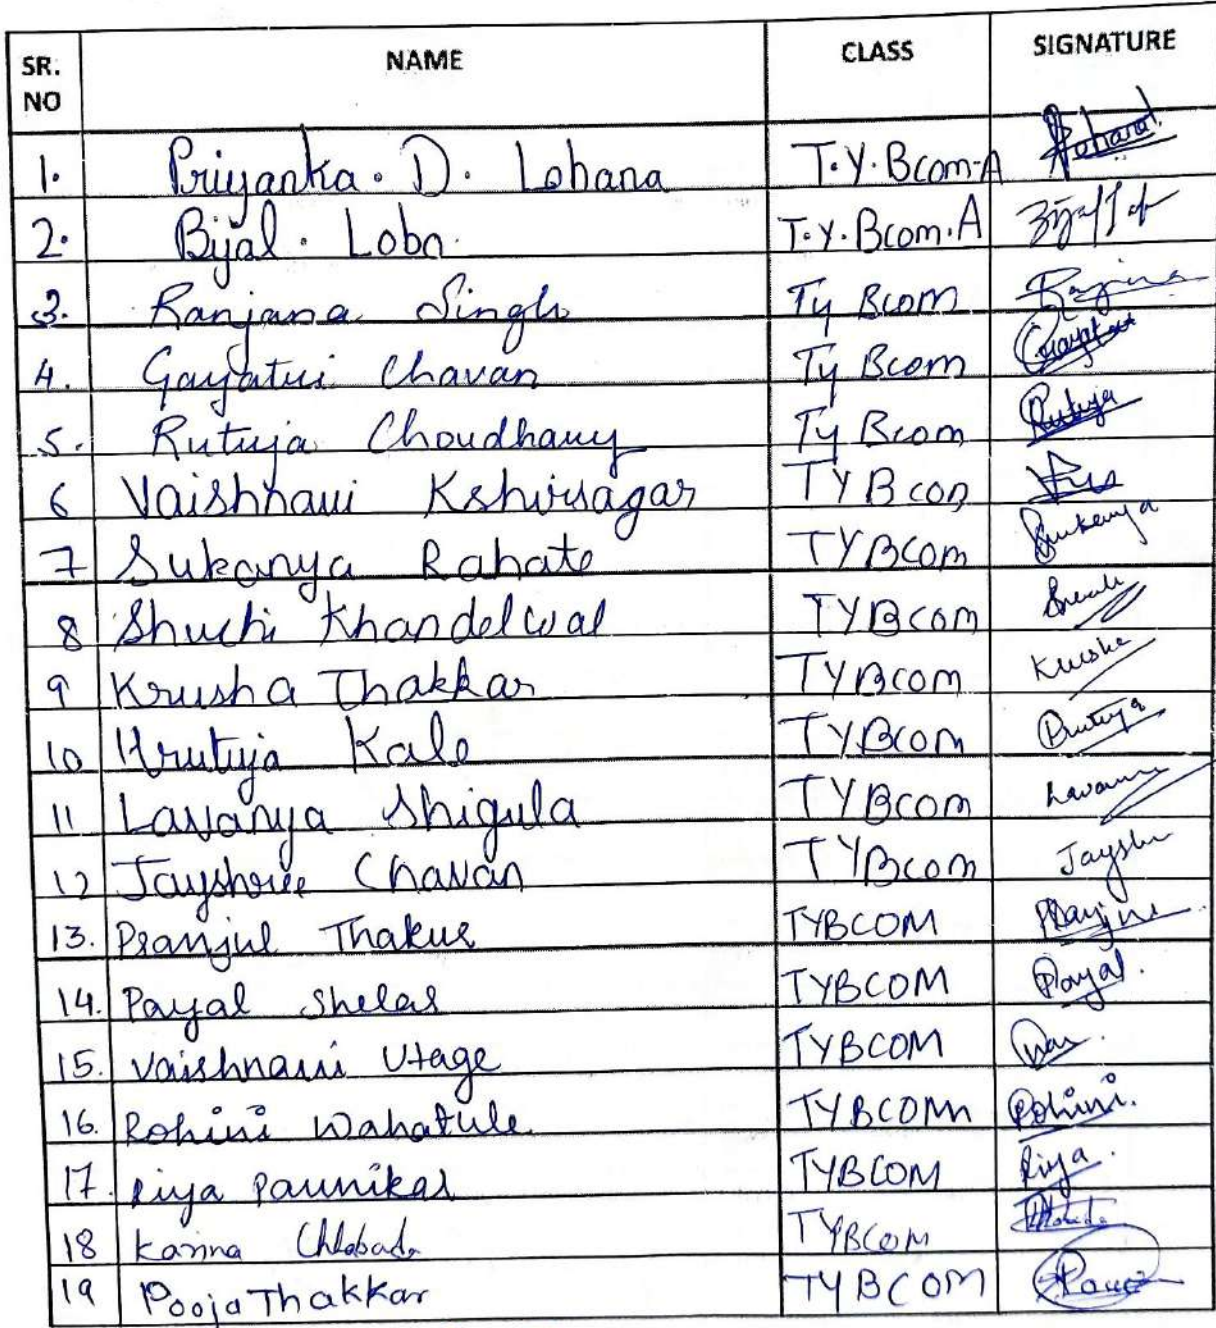 SR. NO NAME CLASS SIGNATURE
1. Priyanka. D. Lohana T.Y.Bcom-A Lohana
2. Bijal. Loba. T.Y.Bcom.A
3. Ranjana Singh Ty Bcom
4. Gayatri Chavan Ty Bcom
5. Rutuja Choudhary Ty Bcom Rutuja
6 Vaishnavi Kshirsagar TYBcom
7 Sukanya Rahate TYBCOM Sukanya
8 Shuchi Khandelwal TYBCOM
9 Krusha Thakkar TYBCOM Krusha
10 Hrutuja Kale TYBCOM
11 Lavanya Shigula TYBCOM
12 Jayshree Chavan TYBCOM
13. Pranjul Thakur TYBCOM
14. Payal Shelar TYBCOM Payal.
15. Vaishnavi Utage TYBCOM
16. Rohini Wahatule. TYBCOM Rohini.
17. Riya Paunikar TYBCOM Riya.
18 TYBCOM
19 Pooja Thakkar TYBCOM